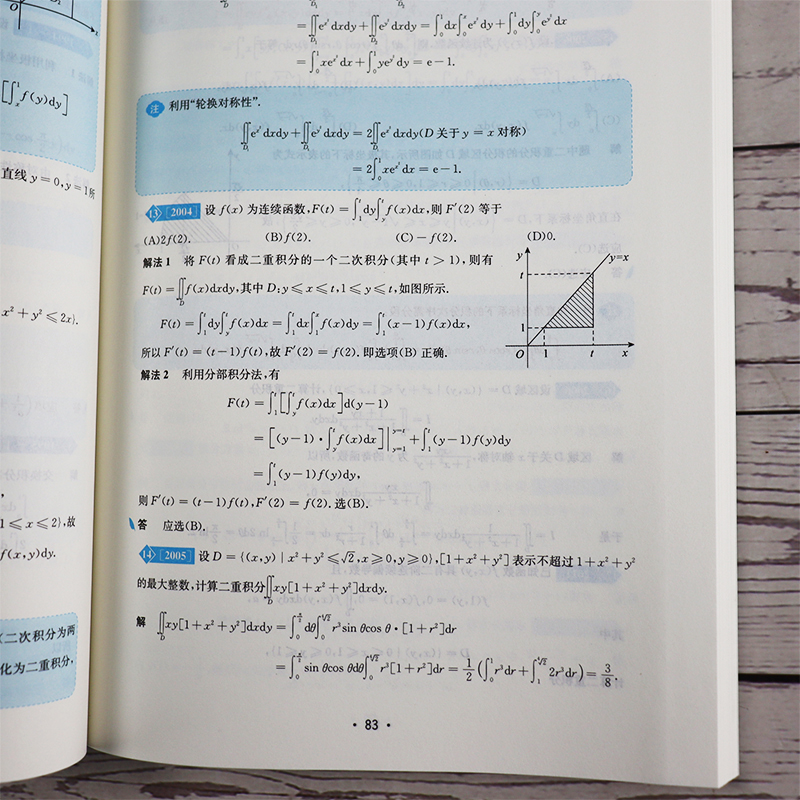 [∫ₓ¹ f(y)dy]
直线 y=0, y=1所
x²+y²≤2x}.
1≤x≤2},故
f(x,y)dy.
(二次积分为两
化为二重积分,
=∬_{D₁}e^{y²}dxdy+∬_{D₂}e^{x²}dxdy=∫₀¹dx∫₀ˣe^{x²}dy+∫₀¹dy∫₀ʸe^{y²}dx
=∫₀¹xe^{x²}dx+∫₀¹ye^{y²}dy=e-1.
注 利用“轮换对称性”.
=2∫₀¹xe^{x²}dx=e-1.
13 [2004] 设 f(x) 为连续函数,F(t)=∫₁ᵗdy∫ᵧᵗf(x)dx,则 F′(2) 等于
(A)2f(2). (B)f(2). (C)-f(2). (D)0.
解法1 将 F(t) 看成二重积分的一个二次积分(其中 t>1),则有
F(t)=∬_D f(x)dxdy,其中 D:y≤x≤t,1≤y≤t,如图所示.
F(t)=∫₁ᵗdy∫ᵧᵗf(x)dx=∫₁ᵗdx∫₁ˣf(x)dy=∫₁ᵗ(x-1)f(x)dx,
所以 F′(t)=(t-1)f(t),故 F′(2)=f(2).即选项(B) 正确.
y
y=x
t
1
O 1 t x
解法2 利用分部积分法,有
F(t)=∫₁ᵗ[∫ᵧᵗf(x)dx]d(y-1)
=[(y-1)·∫ᵧᵗf(x)dx]|_{y=1}^{y=t}+∫₁ᵗ(y-1)f(y)dy
=∫₁ᵗ(y-1)f(y)dy,
则 F′(t)=(t-1)f(t),F′(2)=f(2).选(B).
答 应选(B).
14 [2005] 设 D={(x,y)|x²+y²≤√2,x≥0,y≥0},[1+x²+y²] 表示不超过 1+x²+y²
的最大整数,计算二重积分∬_D xy[1+x²+y²]dxdy.
解 ∬_D xy[1+x²+y²]dxdy=∫₀^{π/2}dθ∫₀^{⁴√2}r³sin θcos θ·[1+r²]dr
=∫₀^{π/2}sin θcos θdθ∫₀^{⁴√2}r³[1+r²]dr=1/2(∫₀¹r³dr+∫₁^{⁴√2}2r³dr)=3/8.
· 83 ·